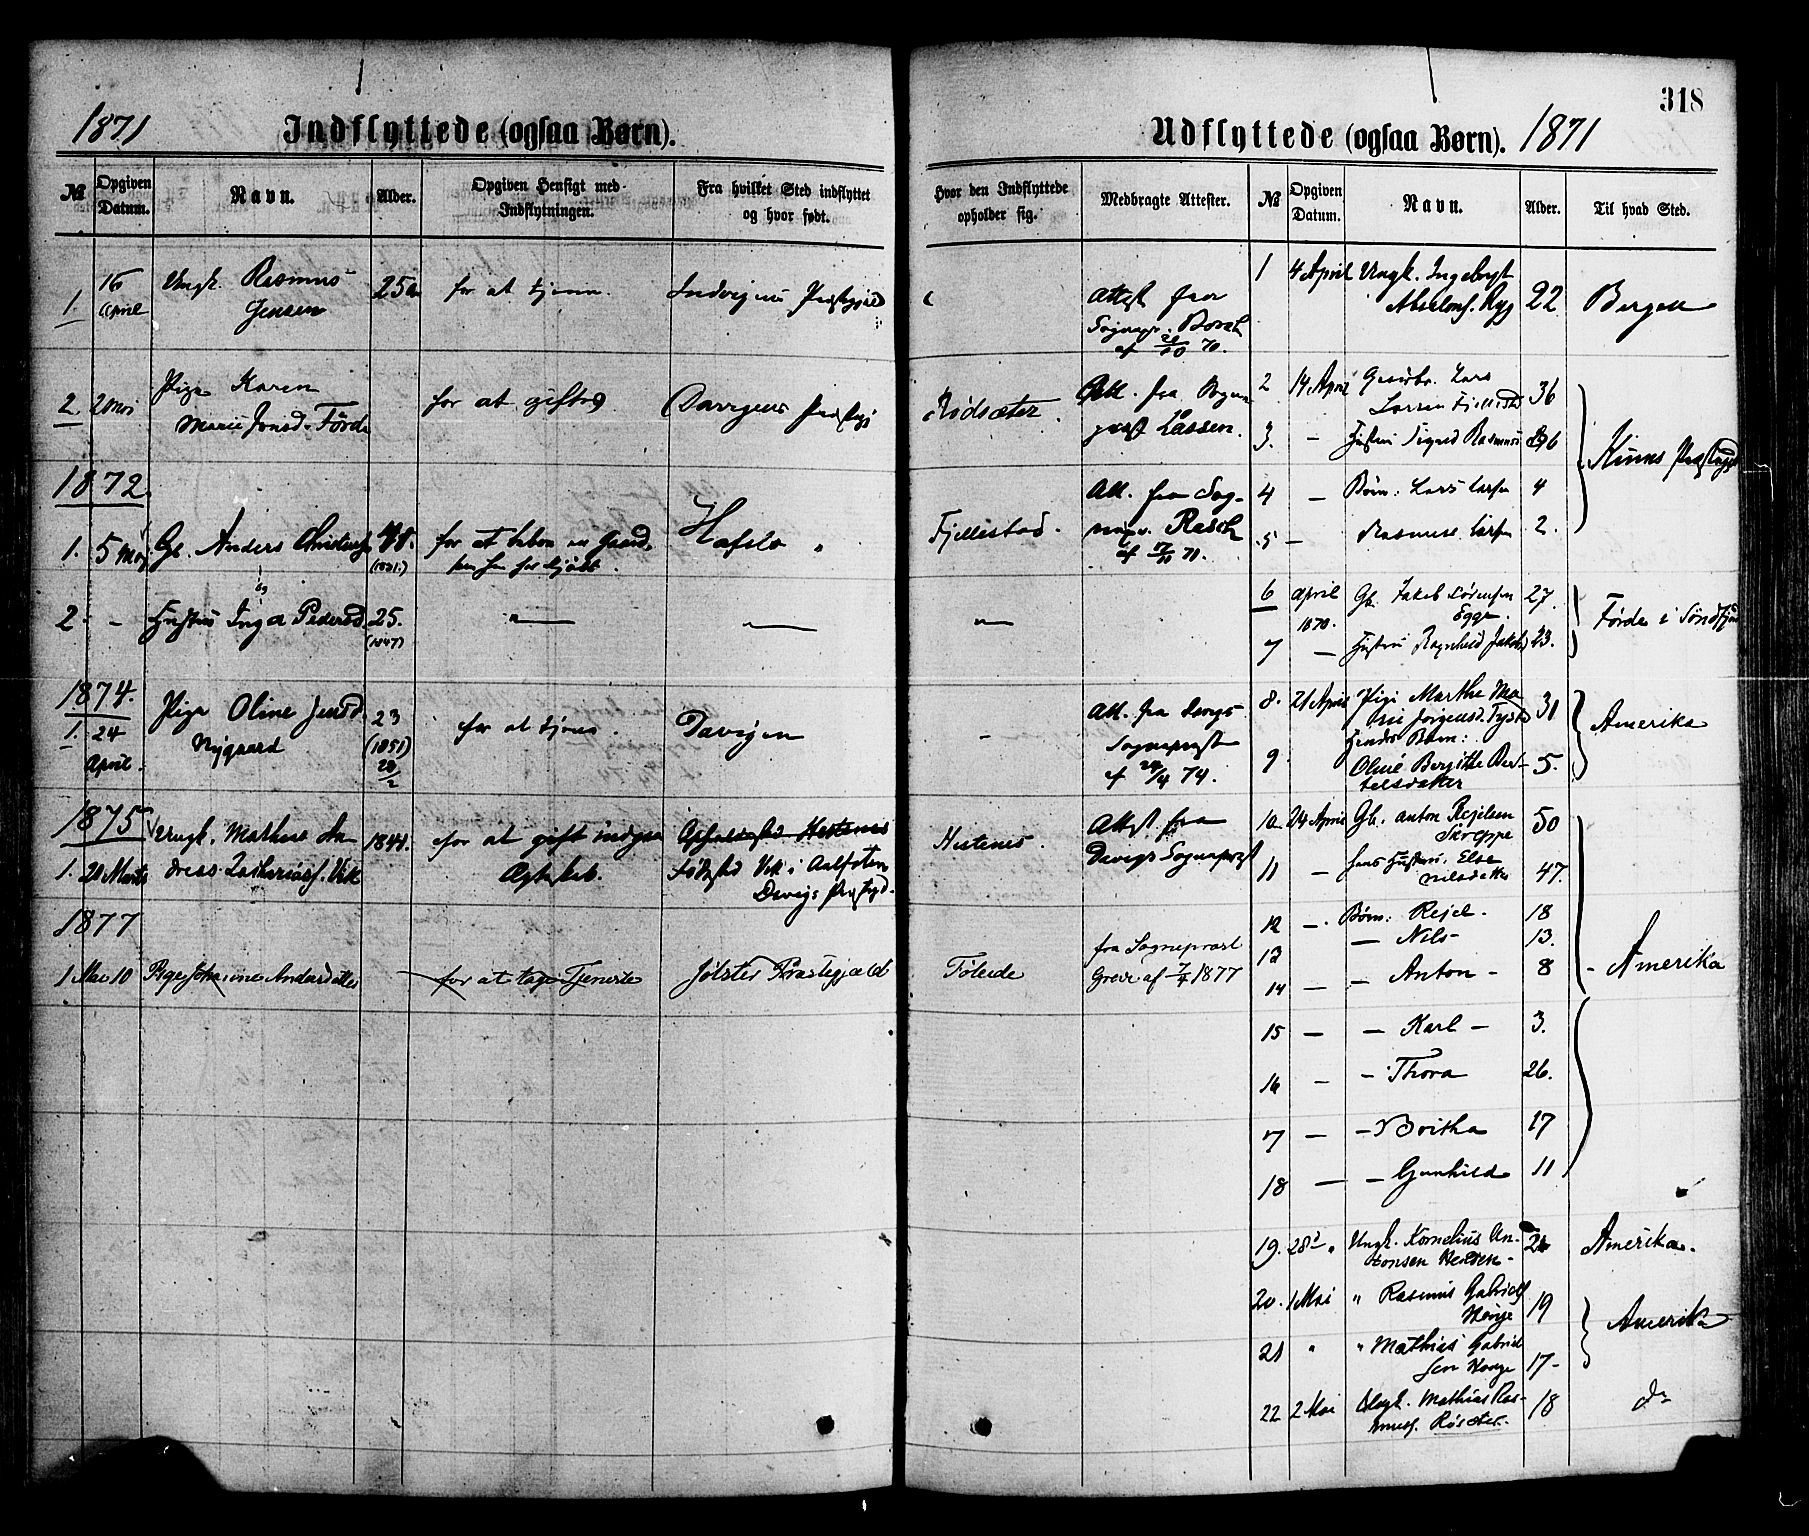 318
1871
Indflyttede (ogsaa Børn).
№
Opgiven Datum.
Navn.
Alder.
Opgiven Hensigt med Indflytningen.
Fra hvilket Sted indflyttet og hvor født.
Hvor den Indflyttede opholder sig.
Medbragte Attester.
1.
16 April
Ungk. Rasmus
Jensen
25
for at tjene.
Indvigens Præstegjeld
Attest fra
Sognepr.
af 70.
2
2 Mai
Pige Karen
Marie Jonsd. Førde
for at giftes
Davigens Præstegj
Rødsæter.
Att. fra Sogne
præst Låssen.
1872.
1.
5 Maj
Gb. Anders
48.
(1821.)
for at bebo en Gaard,
som han har kjøbt.
Hafslo "
Fjellestad.
Att. fra Sog-
nepr. Rasch
af 71.
og
2.
-
Hustru Inga Pedersd
25.
(1847)
1874.
1.
24
April.
Pige Oline Jensd
Nygaard
23
(1851)
28/2
for at tjene.
Davigen
-
Att. fra Davigs
Sognepræst
af 24/4 74.
1875
1.
20 Marts
Ungk. Mathias An
dreas Zachariasf. Vik
1844.
for at gift indgaa
Ægteskab.
Opholdssted Hestenes
Fødested Vik i Aalfoten
Davigs Præstegd.
Hestenes.
Attest fra
Davigs Sognepræst
1877
1
Mai 10
Pige Johanne Andersdatter
for at tage Tjeneste
Jølster Præstegjæld
Tøleide
fra Sognepræst
Greve af 7/4 1877
Udflyttede (ogsaa Børn).
1871
№
Opgiven Datum.
Navn.
Alder.
Til hvad Sted.
1
4 April
Ungk. Ingebrigt
Absalons. Ryg
22
Bergen
2
14 April
Lars
Larsen Fjellestd
36
Kinns Præstegjd
3.
-
Hustru Sigrid Rasmusd
36
4
-
Børn: Lars Larsen
4
5
-
Rasmus Larsen
2.
6
April
1870.
Gb. Jakob Sørensen
Egge.
27.
Førde i Søndfjord
7
-
Hustru Ragnhild Jakobsd
23.
8.
21 April
Pige Marthe Ma
rie Jørgensd. Tyst
31
Amerika
Hendes Barn:
9
Oline Bergitte Ber-
telsdatter
5.
10
24 April
Gb. Anton Rejelsen
Skreppe
50
11
-
hans Hustru. Else
Nilsdatter
47.
12
-
Børn: Rejel.
18
13
- Nils -
13.
14
-
- Anton -
8
- Amerika
15
-
- Karl -
3.
16
-
- Thora
26.
17
-
- Britha
17
18
-
- Gunhild
11
19.
28d "
Ungk. Kornelius An-
tonsen
Amerika.
20.
1 Mai
" Rasmus Gabriels
Hauge
19
Amerika
21
"
" Mathias Gabriel
sen Hauge
17-
22
2 Mai
Ungk. Mathias Ras-
musf. Røsæter.
18
do